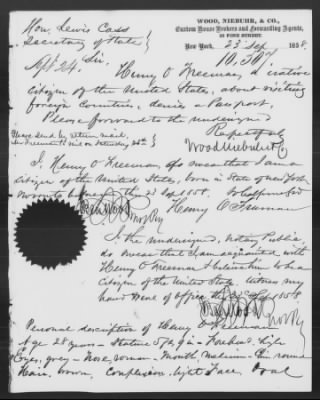 WOOD, NIEBUHR, & CO.,
Custom House Brokers and Forwarding Agents,
18 PINE STREET.
Hon. Lewis Cass
Secretary of State
New York, 23 Sep 1858.
Sept 24. Sir 10,507
Henry O Freeman, a native
citizen of the United States, about visiting
foreign Countries, desires a Passport,
Please forward to the undersigned
Respectfully
Wood Niebuhr & Co
Please send by return mail,
Mr Freeman on Saturday 25th
I, Henry O Freeman, do swear that I am a
citizen of the United States, born in State of New York
Sworn to before me the 23 Sep 1858.
Not Pby Henry O Freeman
I the undersigned, Notary Public,
do swear that I am acquainted with
Henry O Freeman & believe him to be a
citizen of the United States. Witness my
hand & seal of office this 23 Sep 1858
Not Pby
Personal description of Henry O Freeman
Age 28 years - Stature 5 ft 9 in - Forehead, high
Eyes, grey - Nose, roman - Mouth, medium - Chin round
Hair, brown, Complexion, light Face, Oval